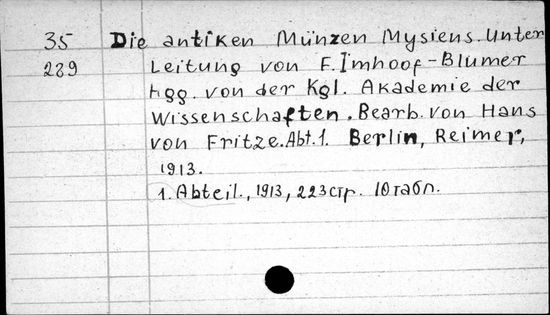 35 Die antiken Münzen Mysiens. Unter
289 Leitung von F. Imhoof-Blumer
hgg. von der Kgl. Akademie der
Wissenschaften. Bearb. von Hans
von Fritze. Abt. 1. Berlin, Reimer,
1913.
1. Abteil., 1913, 223 стр. 10 табл.